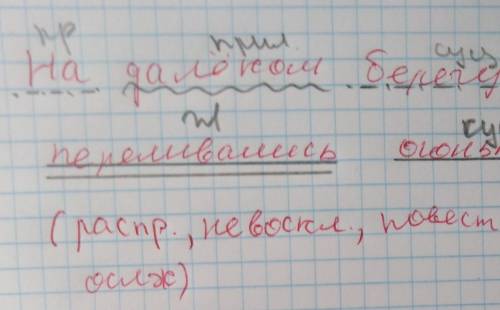 пр прил. сущ
На далёком берегу
гл сущ
переливались огоньк
(распр., невоскл., повест
ослж)